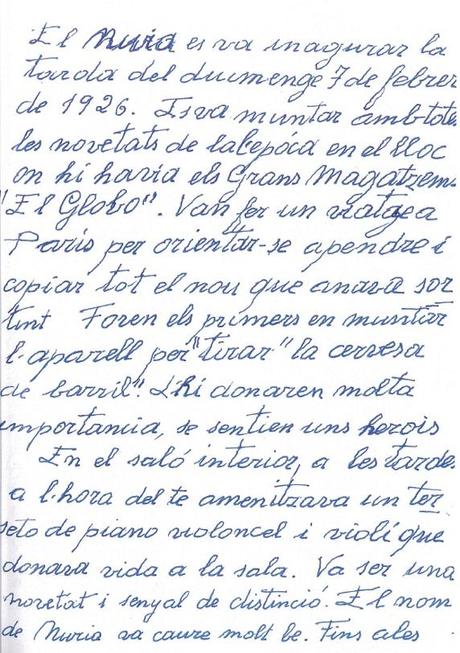 El Nuria es va inagurar la
tarda del diumenge 7 de febrer
de 1926. Es va muntar amb totes
les novetats de la época en el lloc
on hi havia els Grans Magatzems
"El Globo". Van fer un viatge a
Paris per orientar-se apendre i
copiar tot el nou que anava sor
tint Foren els primers en muntar
l'aparell per "tirar" la cervesa
de barril". L'hi donaren molta
importancia, se sentien uns herois
En el saló interior, a les tardes
a l'hora del te amenitzava un ter
seto de piano violoncel i violí que
donava vida a la sala. Va ser una
novetat i senyal de distinció. El nom
de Nuria va caure molt be. Fins a les